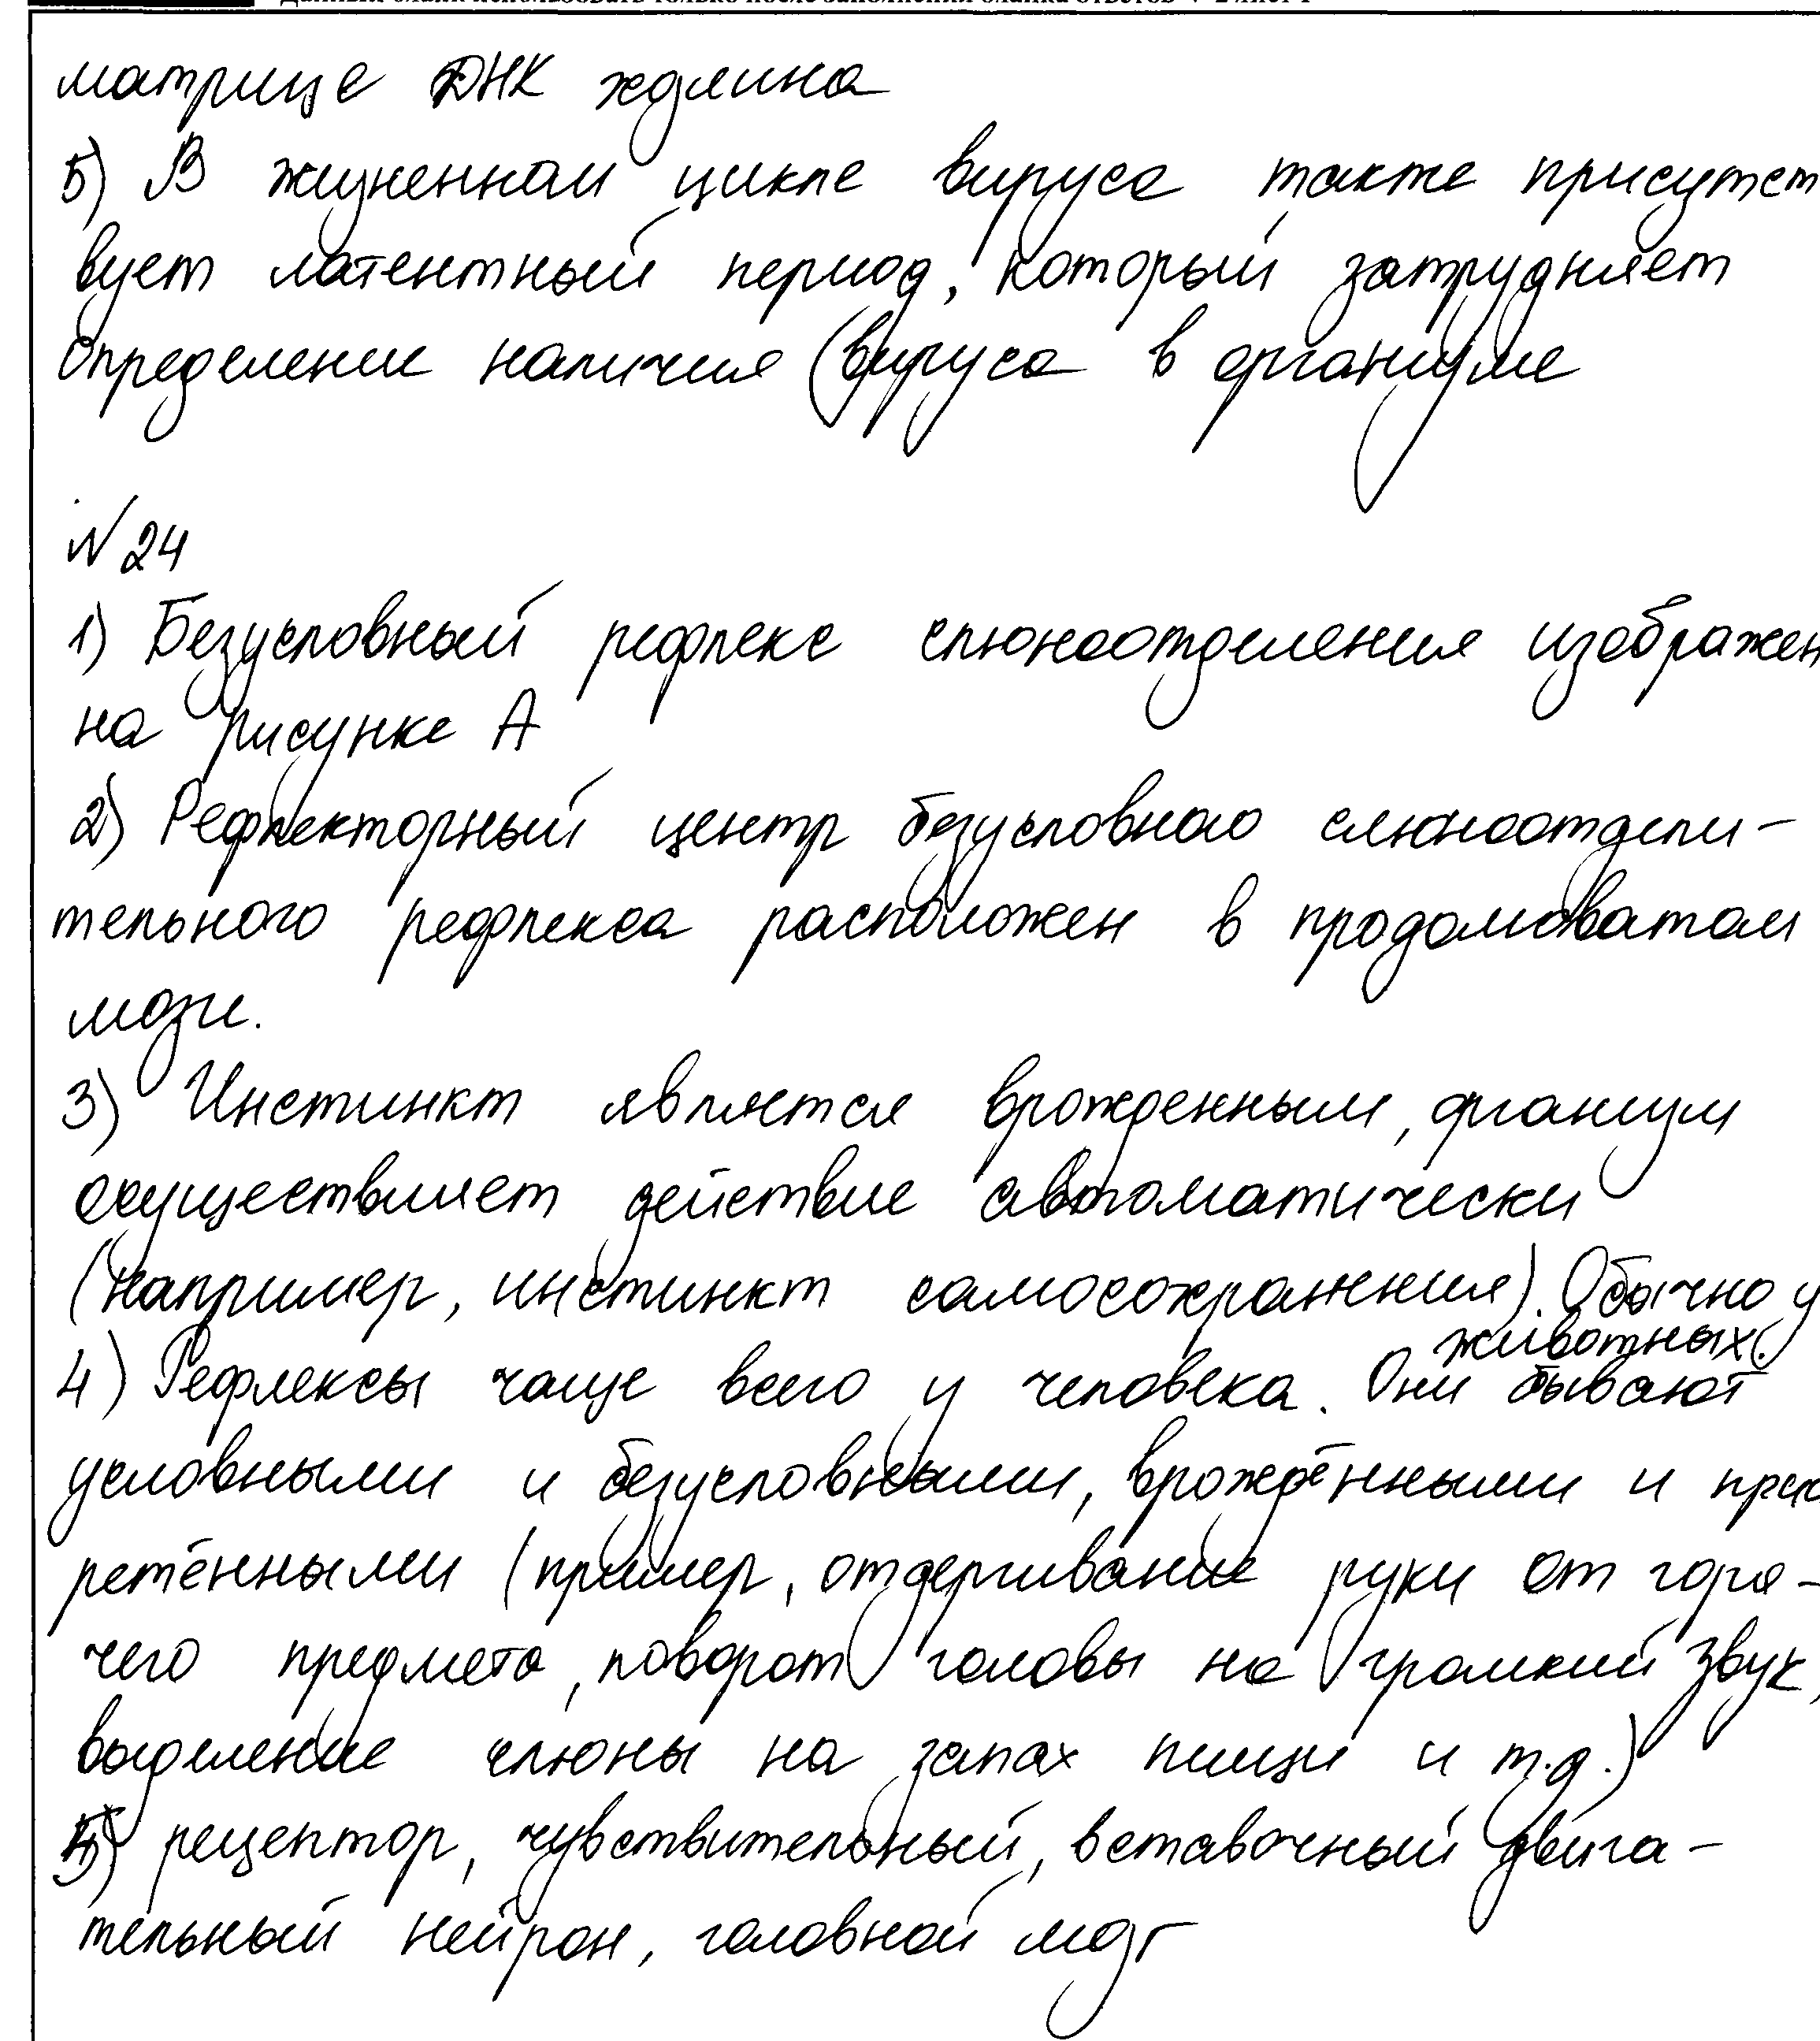 матрице ДНК хозяина
5) В жизненном цикле вируса также присутст
вует латентный период, который затрудняет
определение наличия вируса в организме
№24
1) Безусловный рефлекс слюноотделения изображен
на рисунке А
2) Рефлекторный центр безусловного слюноотдели-
тельного рефлекса расположен в продолговатом
мозге.
3) Инстинкт является врожденным, организм
осуществляет действие автоматически
(например, инстинкт самосохранения). Обычно у
животных.
4) Рефлексы чаще всего у человека. Они бывают
условными и безусловными, врождёнными и прио
ретёнными (пример, отдергивание руки от горя-
чего предмета, поворот головы на громкий звук,
выделение слюны на запах пищи и т.д.)
5) рецептор, чувствительный, вставочный двига-
тельный нейрон, головной мозг